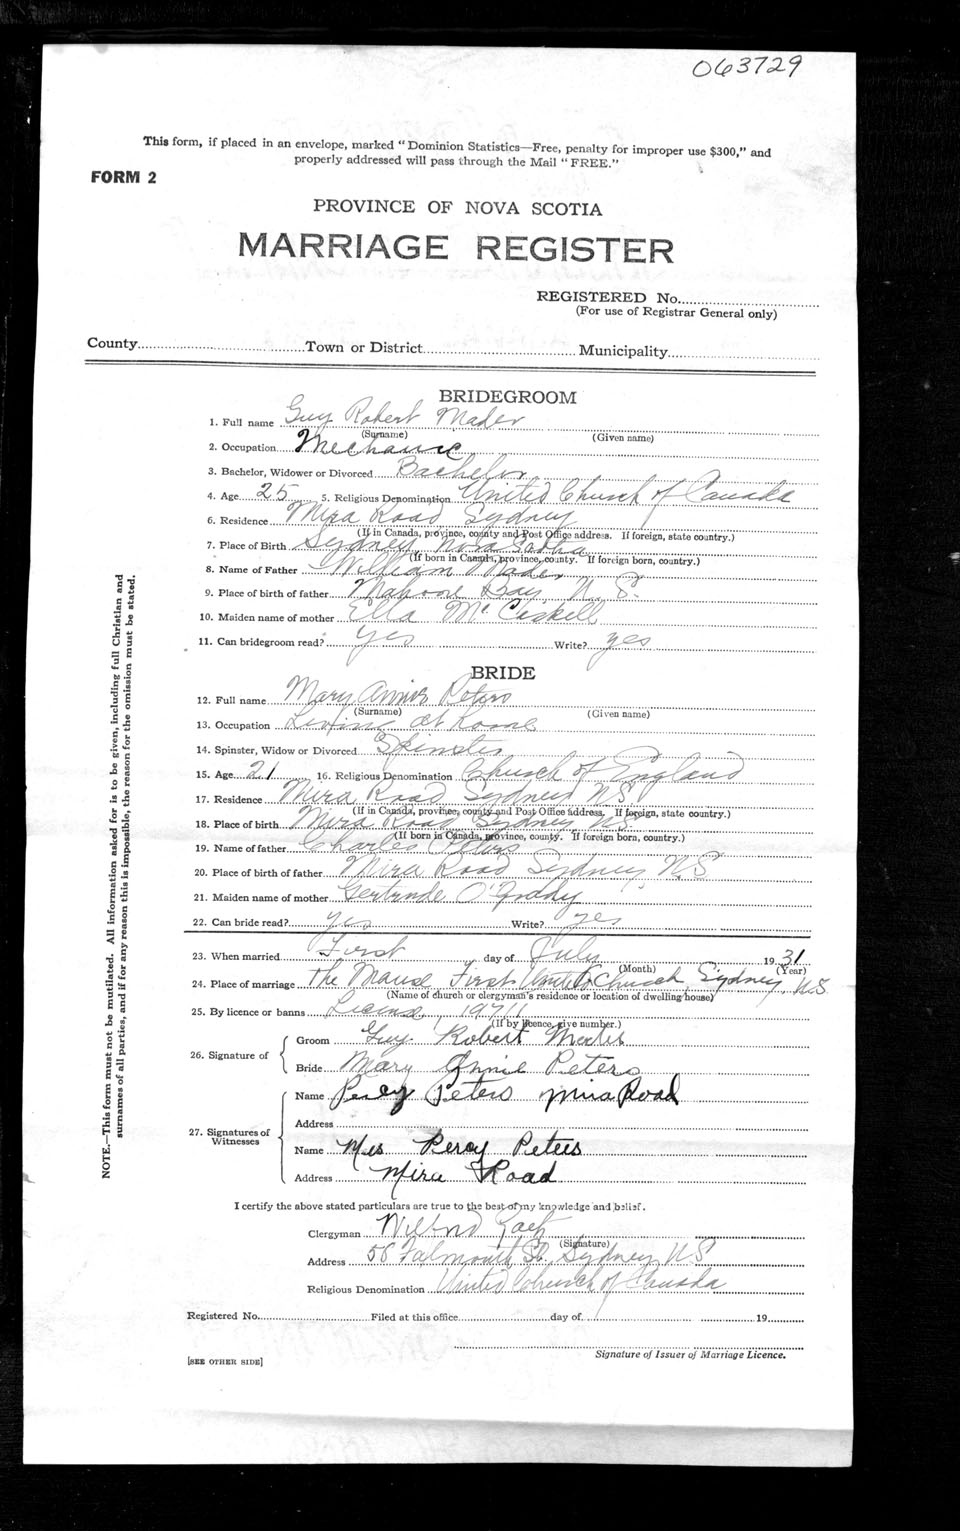 063729
This form, if placed in an envelope, marked "Dominion Statistics—Free, penalty for improper use $300," and
properly addressed will pass through the Mail "FREE."
FORM 2
PROVINCE OF NOVA SCOTIA
MARRIAGE REGISTER
REGISTERED No.
(For use of Registrar General only)
County Town or District Municipality
BRIDEGROOM
1. Full name Guy Robert Mader
(Surname) (Given name)
2. Occupation Mechanic
3. Bachelor, Widower or Divorced Bachelor
4. Age 25 5. Religious Denomination United Church of Canada
6. Residence Mira Road Sydney
(If in Canada, province, county and Post Office address. If foreign, state country.)
7. Place of Birth Sydney Nova Scotia
(If born in Canada, province, county. If foreign born, country.)
8. Name of Father William Mader
9. Place of birth of father Mahone Bay, N. S.
10. Maiden name of mother Ella McCaskell
11. Can bridegroom read? yes Write? yes
BRIDE
12. Full name Mary Annie Peters
(Surname) (Given name)
13. Occupation Living at Home
14. Spinster, Widow or Divorced Spinster
15. Age 21 16. Religious Denomination Church of England
17. Residence Mira Road Sydney N.S.
(If in Canada, province, county and Post Office address. If foreign, state country.)
18. Place of birth Mira Road Sydney N.S.
(If born in Canada, province, county. If foreign born, country.)
19. Name of father Charles Peters
20. Place of birth of father Mira Road Sydney, N.S
21. Maiden name of mother Gertrude O'Grady
22. Can bride read? yes Write? yes
23. When married First day of July 19 31
(Month) (Year)
24. Place of marriage The Manse First United Church, Sydney, N.S.
(Name of church or clergyman's residence or location of dwelling house)
25. By licence or banns License, 19711
(If by licence, give number.)
26. Signature of
Groom Guy Robert Mader
Bride Mary Annie Peters
27. Signatures of Witnesses
Name Percy Peters Mira Road
Address
Name Mrs Percy Peters
Address Mira Road
I certify the above stated particulars are true to the best of my knowledge and belief.
Clergyman
(Signature)
Address 56 Falmouth St. Sydney, N.S
Religious Denomination United Church of Canada
Registered No. Filed at this office day of 19
Signature of Issuer of Marriage Licence.
[SEE OTHER SIDE]
NOTE.—This form must not be mutilated. All information asked for is to be given, including full Christian and
surnames of all parties, and if for any reason this is impossible, the reason for the omission must be stated.